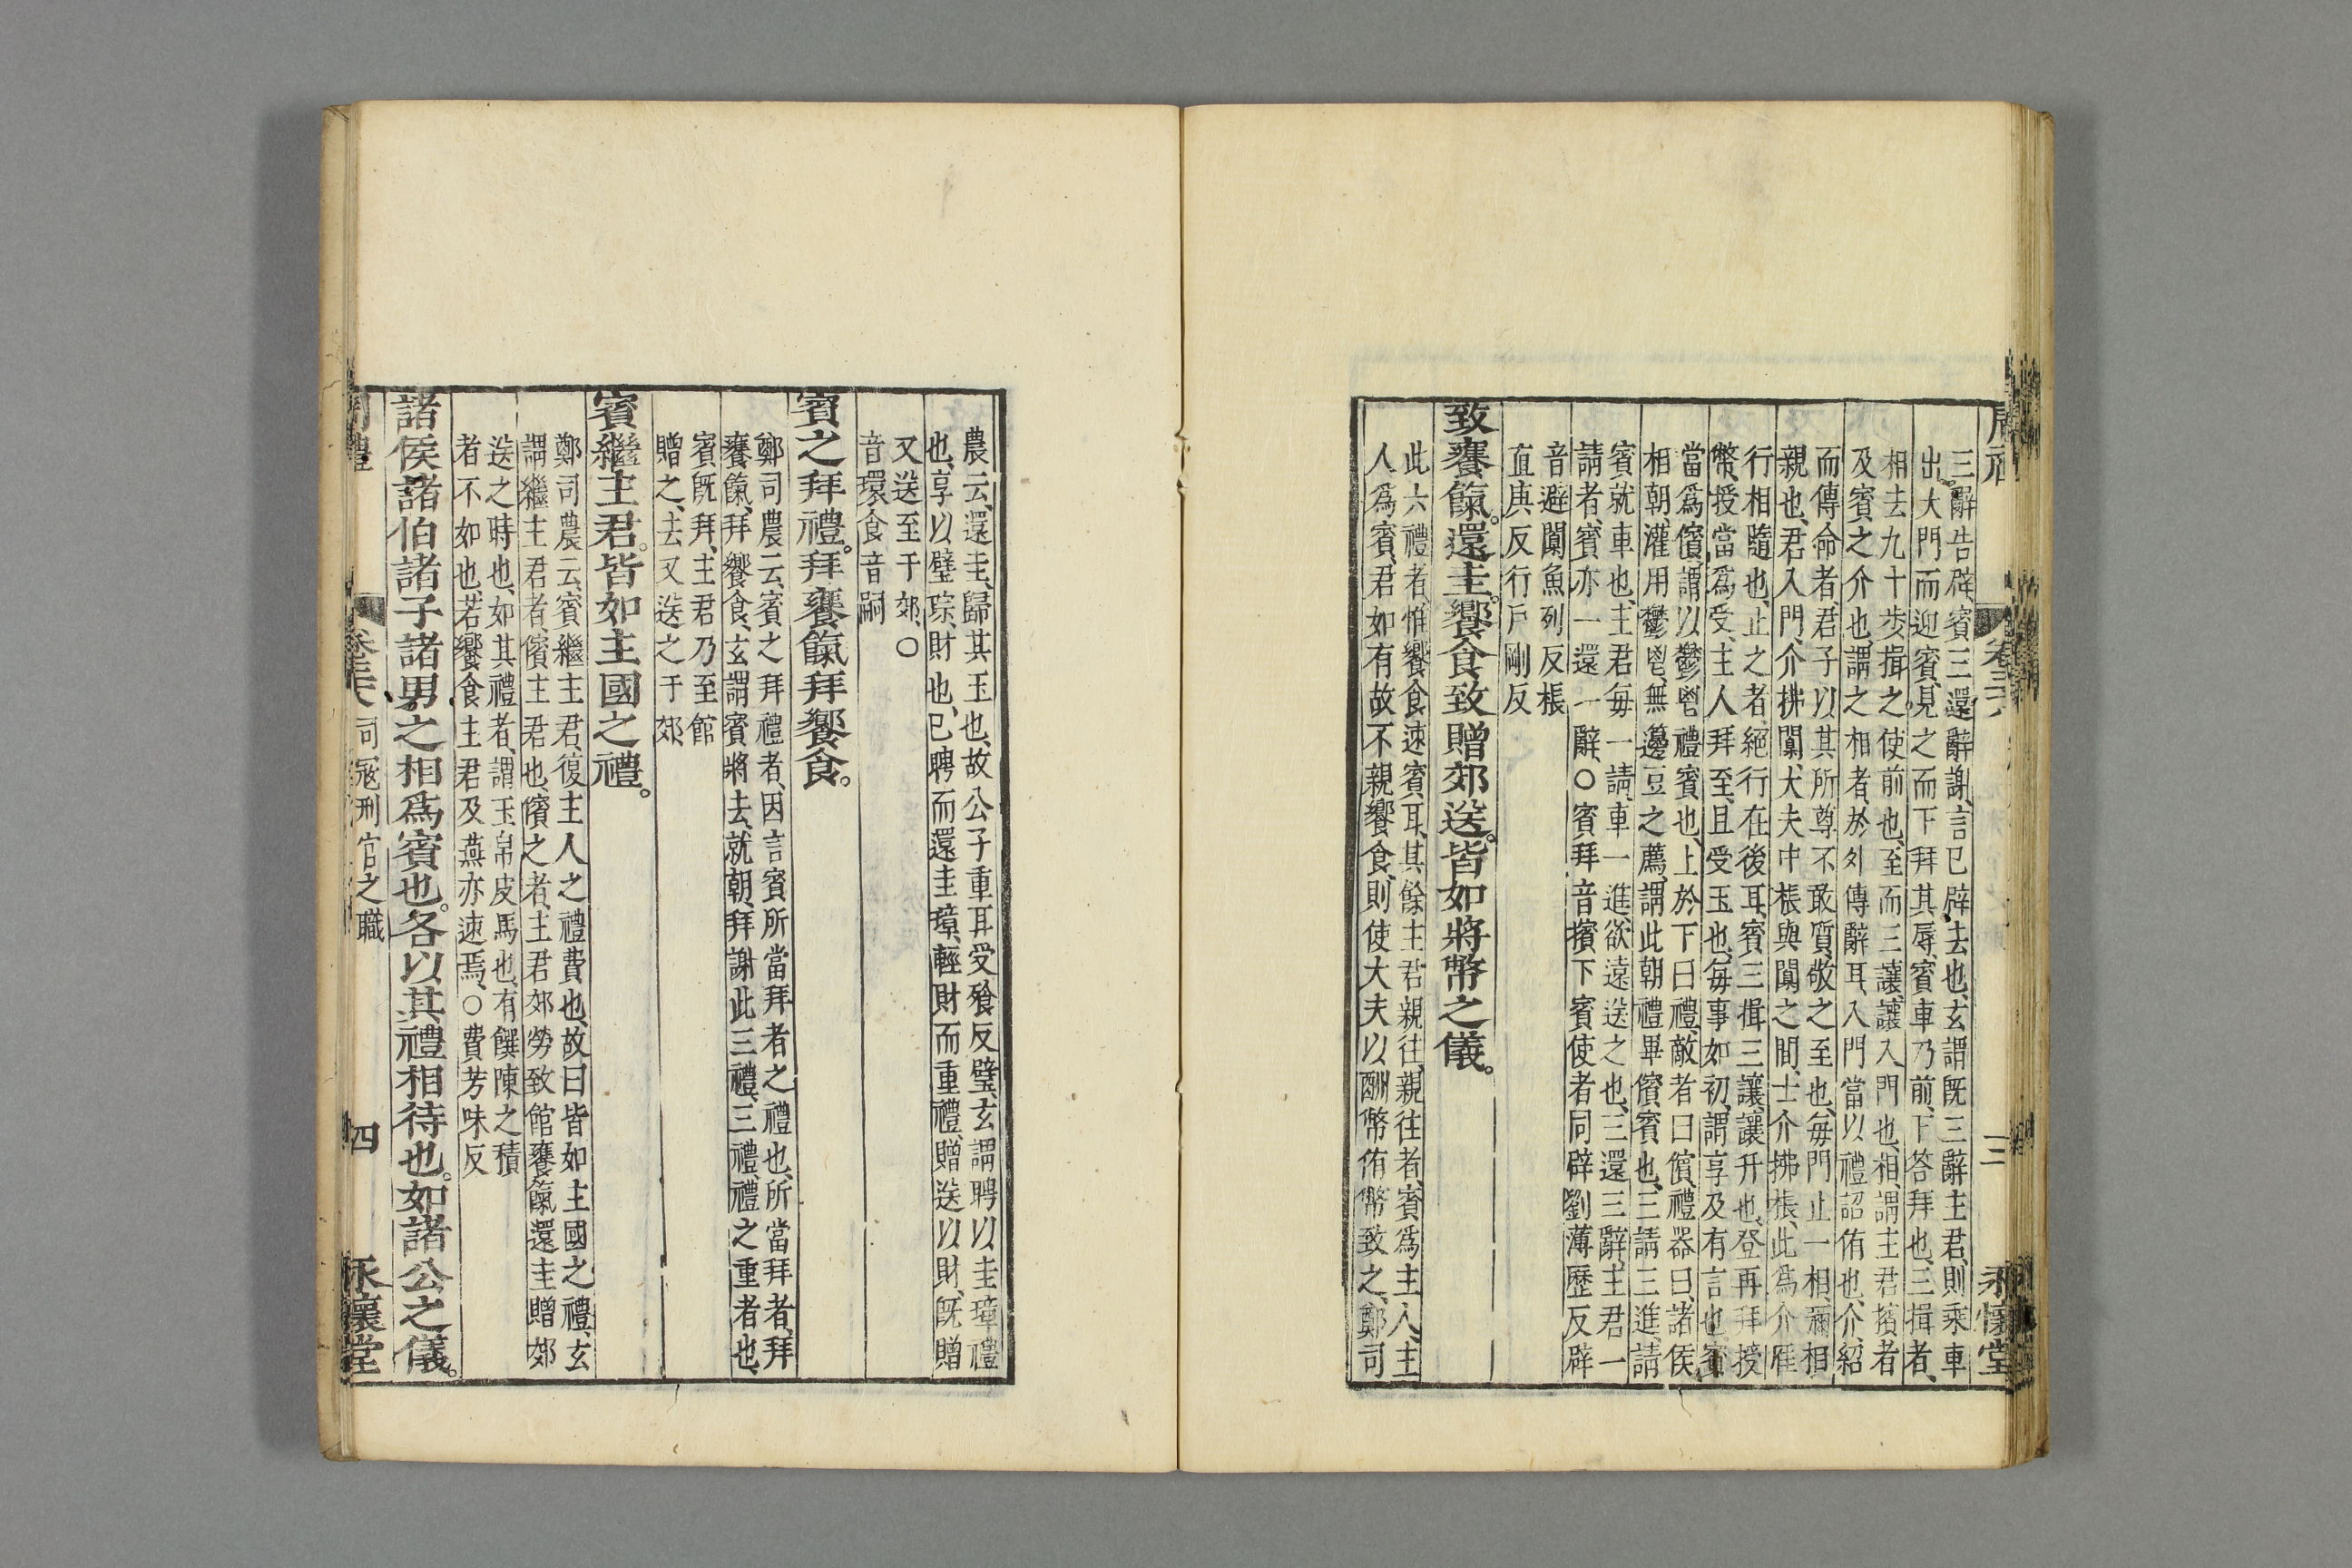 三辭告辟賓三還辭謝言已辟去也玄謂旣三辭主君則乘車
出大門而迎賓見之而下拜其辱賓車乃前下荅拜也三揖者
相去九十步揖之使前也至而三讓讓入門也相謂主君擯者
及賓之介也謂之相者於外傳辭耳入門當以禮詔侑也介紹
而傳命者君子以其所尊不敢質敬之至也每門止一相彌相
親也君入門介拂闑大夫中棖與闑之間士介拂棖此爲介鴈
行相隨也止之者絕行在後耳賓三揖三讓讓升也登再拜授
幣授當爲受主人拜至且受玉也每事如初謂享及有言也賓
當爲儐謂以鬱鬯禮賓也上於下曰禮敵者曰儐禮器曰諸侯
相朝灌用鬱鬯無籩豆之薦謂此朝禮畢儐賓也三請三進請
賓就車也主君每一請車一進欲遠送之也三還三辭主君一
請者賓亦一還一辭○賓拜音擯下賓使者同辟劉薄歷反辟
音避闑魚列反棖
直庚反行戶剛反
致饔餼還圭饗食致贈郊送皆如將幣之儀。
此六禮者惟饗食速賓耳其餘主君親往親往者賓爲主人主
人爲賓君如有故不親饗食則使大夫以酬幣侑幣致之鄭司
卷三六
三
永懷堂
農云還圭歸其玉也故公子重耳受飱反璧玄謂聘以圭璋禮
也享以璧琮財也已聘而還圭璋輕財而重禮贈送以財旣贈
又送至于郊○
音環食音嗣
賓之拜禮。拜饔餼拜饗食。
鄭司農云賓之拜禮者因言賓所當拜者之禮也所當拜者拜
饔餼拜饗食玄謂賓將去就朝拜謝此三禮三禮禮之重者也
賓旣拜主君乃至館
贈之去又送之于郊
賓繼主君。皆如主國之禮。
鄭司農云賓繼主君復主人之禮費也故曰皆如主國之禮玄
謂繼主君者儐主君也儐之者主君郊勞致館饔餼還圭贈郊
送之時也如其禮者謂玉帛皮馬也有饌陳之積
者不如也若饗食主君及燕亦速焉○費芳味反
諸侯諸伯諸子諸男之相爲賓也。各以其禮相待也。如諸公之儀。
周禮
卷三六
司寇刑官之職
四
永懷堂